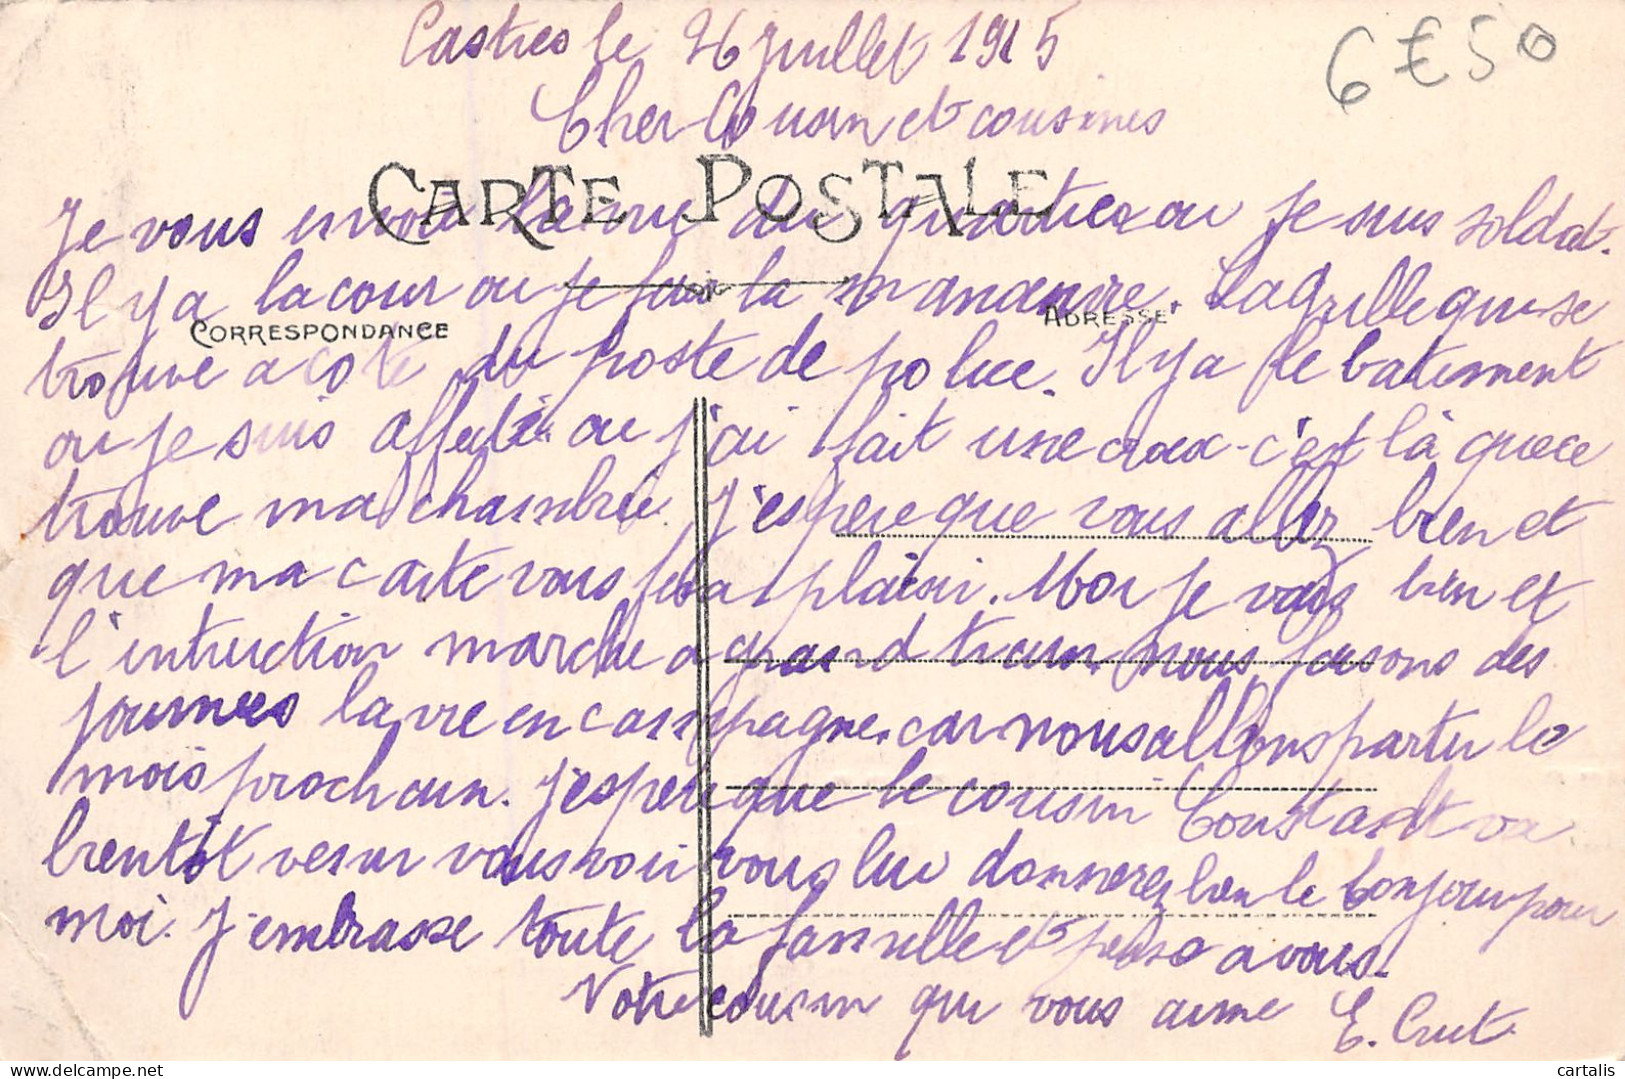 Castres le 26 Juillet 1915
6€50
Cher Cousin et cousines
CARTE POSTALE
Je vous envoi la vue du quartier ou je suis soldat.
Il y a la cour ou je fais la manœuvre. La grille qui se
CORRESPONDANCE
ADRESSE
trouve a coté du poste de police. Il y a le batiment
ou je suis affecté ou j'ai fait une croix c'est là que ce
trouve ma chambrée. J'espere que vous allez bien et
que ma carte vous fera plaisir. Moi je vais bien et
l'intruction marche a grand train nous faisons des
journées la vie en campagne. car nous allons partir le
mois prochain. J'espere que le cousin Constant va
bientôt venir vous voir vous lui donnerez bien le bonjour pour
moi. J'embrasse toute la famille et pense a vous.
Votre cousin qui vous aime E. Crut
https://www.delcampe.net
cartalis